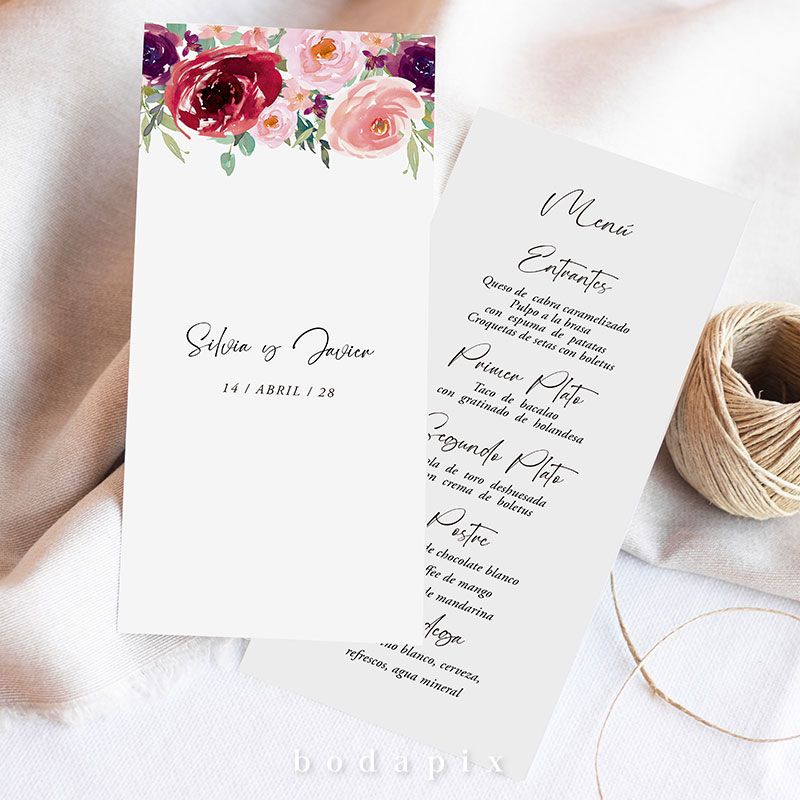 Silvia y Javier
14 / ABRIL / 28
Menú
Entrantes
Queso de cabra caramelizado
Pulpo a la brasa
con espuma de patatas
Croquetas de setas con boletus
Primer Plato
Taco de bacalao
con gratinado de holandesa
Segundo Plato
de toro deshuesada
crema de boletus
Postre
de chocolate blanco
de mango
de mandarina
blanco, cerveza,
refrescos, agua mineral
bodapix